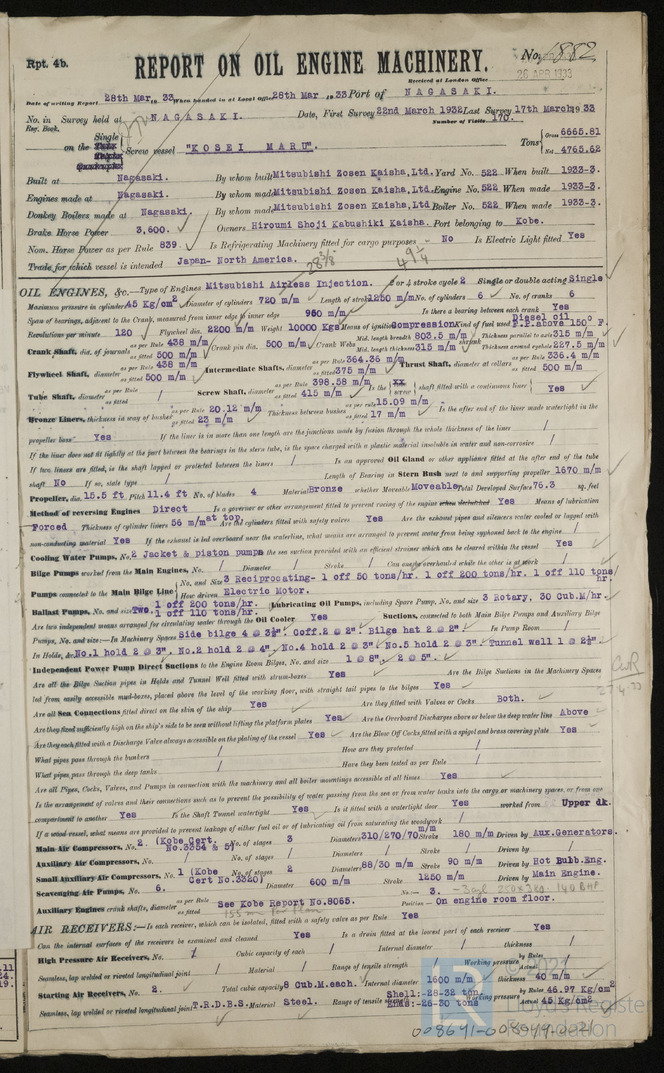 Rpt. 4b.
REPORT ON OIL ENGINE MACHINERY.
No. 6882
Received at London Office 26 APR 1933
Date of writing Report 28th Mar, 19 33 When handed in at Local Office 28th Mar 19 33 Port of NAGASAKI.
No. in Reg. Book. Survey held at NAGASAKI. Date, First Survey 22nd March 1932 Last Survey 17th March 19 33
Number of Visits 170.
on the Single Triple Quadruple Screw vessel "KOSEI MARU". Tons Gross 6665.81 Net 4765.62
Built at Nagasaki. By whom built Mitsubishi Zosen Kaisha, Ltd. Yard No. 522 When built 1933-3.
Engines made at Nagasaki. By whom made Mitsubishi Zosen Kaisha, Ltd. Engine No. 522 When made 1933-3.
Donkey Boilers made at Nagasaki. By whom made Mitsubishi Zosen Kaisha, Ltd. Boiler No. 522 When made 1933-3.
Brake Horse Power 3,600. Owners Hiroumi Shoji Kabushiki Kaisha. Port belonging to Kobe.
Nom. Horse Power as per Rule 839 Is Refrigerating Machinery fitted for cargo purposes No Is Electric Light fitted Yes
Trade for which vessel is intended Japan- North America. 28 3/8 49 1/4
OIL ENGINES, &c.—Type of Engines Mitsubishi Airless Injection. 2 or 4 stroke cycle 2 Single or double acting Single
Maximum pressure in cylinders 45 Kg/cm² Diameter of cylinders 720 m/m Length of stroke 1250 m/m No. of cylinders 6 No. of cranks 6
Span of bearings, adjacent to the Crank, measured from inner edge to inner edge 950 m/m Is there a bearing between each crank Yes
Revolutions per minute 120 Flywheel dia. 2200 m/m Weight 10000 Kgs Means of ignition Compression Kind of fuel used Diesel oil F.P. above 150° F.
Crank Shaft, dia. of journals as per Rule 438 m/m as fitted 500 m/m Crank pin dia. 500 m/m Crank Webs Mid. length breadth 803.5 m/m Mid. length thickness 315 m/m shrunk Thickness parallel to axis 315 m/m Thickness around eyehole 227.5 m/m
Flywheel Shaft, diameter as per Rule 438 m/m as fitted 500 m/m Intermediate Shafts, diameter as per Rule 364.36 m/m as fitted 375 m/m Thrust Shaft, diameter at collars as per Rule 336.4 m/m as fitted 500 m/m
Tube Shaft, diameter as per Rule as fitted / Screw Shaft, diameter as per Rule 398.58 m/m as fitted 415 m/m Is the screw shaft fitted with a continuous liner Yes
Bronze Liners, thickness in way of bushes as per Rule 20.12 m/m as fitted 23 m/m Thickness between bushes as per rule 15.09 m/m as fitted 17 m/m Is the after end of the liner made watertight in the
propeller boss Yes If the liner is in more than one length are the junctions made by fusion through the whole length of the liner /
If the liner does not fit tightly at the part between the bearings in the stern tube, is the space charged with a plastic material insoluble in water and non-corrosive /
If two liners are fitted, is the shaft lapped or protected between the liners / Is an approved Oil Gland or other appliance fitted at the after end of the tube
shaft No If so, state type / Length of Bearing in Stern Bush next to and supporting propeller 1670 m/m
Propeller, dia. 15.5 ft Pitch 11.4 ft No. of blades 4 Material Bronze whether Moveable Moveable Total Developed Surface 76.3 sq. feet
Method of reversing Engines Direct Is a governor or other arrangement fitted to prevent racing of the engine when declutched Yes Means of lubrication
Forced Thickness of cylinder liners 56 m/m at top Are the cylinders fitted with safety valves Yes Are the exhaust pipes and silencers water cooled or lagged with
non-conducting material Yes If the exhaust is led overboard near the waterline, what means are arranged to prevent water from being syphoned back to the engine /
Cooling Water Pumps, No. 2 Jacket & piston pumps Is the sea suction provided with an efficient strainer which can be cleared within the vessel Yes
Bilge Pumps worked from the Main Engines, No. / Diameter / Stroke / Can one be overhauled while the other is at work /
Pumps connected to the Main Bilge Line No. and Size 3 Reciprocating- 1 off 50 tons/hr. 1 off 200 tons/hr. 1 off 110 tons/hr.
How driven Electric Motor.
Ballast Pumps, No. and size Two. 1 off 200 tons/hr. 1 off 110 tons/hr. Lubricating Oil Pumps, including Spare Pump, No. and size 3 Rotary, 30 Cub.M/hr.
Are two independent means arranged for circulating water through the Oil Cooler Yes Suctions, connected to both Main Bilge Pumps and Auxiliary Bilge
Pumps, No. and size:—In Machinery Spaces Side bilge 4 @ 3½". Coff. 2 @ 2". Bilge hat 2 @ 2" In Pump Room /
In Holds, &c. No.1 hold 2 @ 3". No.2 hold 2 @ 4". No.4 hold 2 @ 3". No.5 hold 2 @ 3". Tunnel well 1 @ 2½".
Independent Power Pump Direct Suctions to the Engine Room Bilges, No. and size 1 @ 8". 2 @ 5".
Are all the Bilge Suction pipes in Holds and Tunnel Well fitted with strum-boxes Yes Are the Bilge Suctions in the Machinery Spaces
led from easily accessible mud-boxes, placed above the level of the working floor, with straight tail pipes to the bilges Yes
Are all Sea Connections fitted direct on the skin of the ship Yes Are they fitted with Valves or Cocks Both.
Are they fixed sufficiently high on the ship's side to be seen without lifting the platform plates Yes Are the Overboard Discharges above or below the deep water line Above
Are they each fitted with a Discharge Valve always accessible on the plating of the vessel Yes Are the Blow Off Cocks fitted with a spigot and brass covering plate Yes
What pipes pass through the bunkers / How are they protected /
What pipes pass through the deep tanks / Have they been tested as per Rule /
Are all Pipes, Cocks, Valves, and Pumps in connection with the machinery and all boiler mountings accessible at all times Yes
Is the arrangement of valves and their connections such as to prevent the possibility of water passing from the sea or from water tanks into the cargo or machinery spaces, or from one
compartment to another Yes Is the Shaft Tunnel watertight Yes Is it fitted with a watertight door Yes worked from Upper dk.
If a wood vessel, what means are provided to prevent leakage of either fuel oil or of lubricating oil from saturating the woodwork /
Main Air Compressors, No. 2. (Kobe Cert. No.3354 & 5) No. of stages 3 Diameters 310/270/70 m/m Stroke 180 m/m Driven by Aux.Generators.
Auxiliary Air Compressors, No. / No. of stages / Diameters / Stroke / Driven by /
Small Auxiliary Air Compressors, No. 1 (Kobe Cert No.3320) No. of stages 2 Diameters 88/30 m/m Stroke 90 m/m Driven by Hot Bulb.Eng.
Scavenging Air Pumps, No. 6. Diameter 600 m/m Stroke 1250 m/m Driven by Main Engine.
Auxiliary Engines crank shafts, diameter as per Rule as fitted See Kobe Report No.8065. No. 3. - 3 cyl 250 x 380 - 140 BHP
Position - On engine room floor.
AIR RECEIVERS:—Is each receiver, which can be isolated, fitted with a safety valve as per Rule Yes
Can the internal surfaces of the receivers be examined and cleaned Yes Is a drain fitted at the lowest part of each receiver Yes
High Pressure Air Receivers, No. / Cubic capacity of each / Internal diameter / thickness /
Seamless, lap welded or riveted longitudinal joint / Material / Range of tensile strength / Working pressure by Rules Actual /
Starting Air Receivers, No. 2. Total cubic capacity 8 Cub.M.each. Internal diameter 1600 m/m thickness 40 m/m
Seamless, lap welded or riveted longitudinal joint T.R.D.B.S. Material Steel. Range of tensile strength Shell:-28-32 ton. Ends:-26-30 tons Working pressure by Rules 46.97 Kg/cm² Actual 45 Kg/cm²
008691-008699-0021
© 2021
Lloyd's Register
Foundation